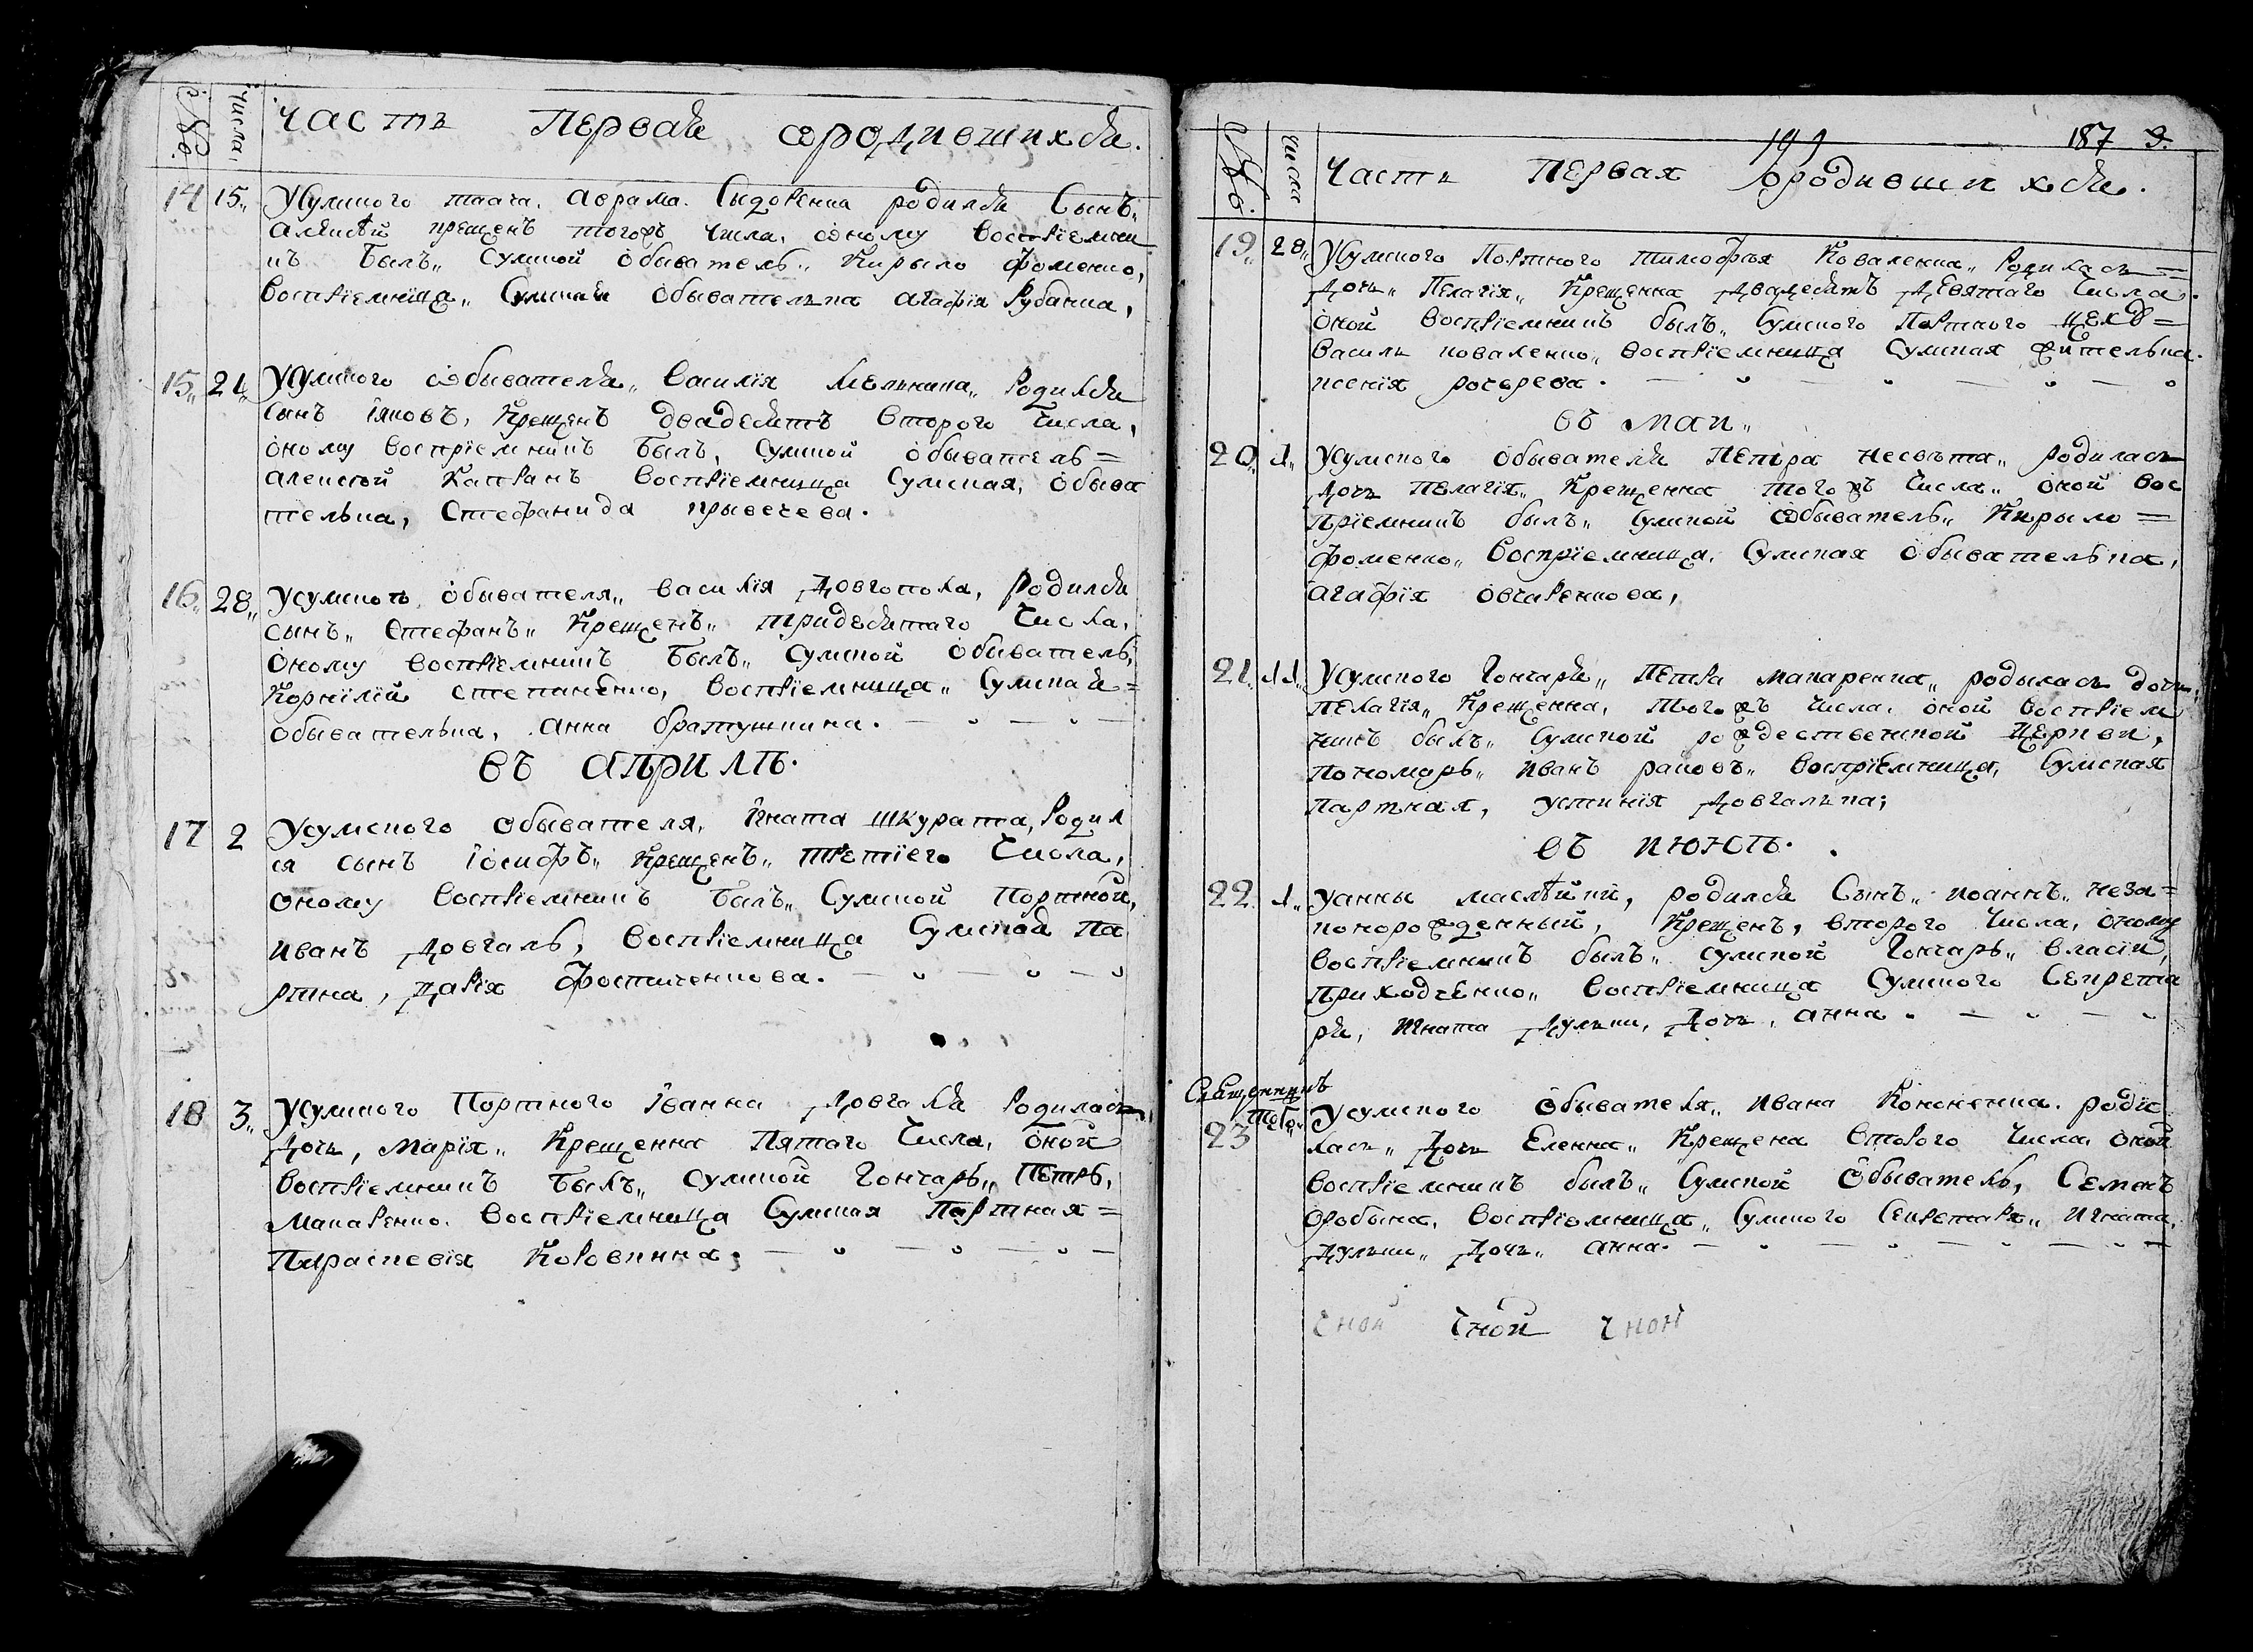 №.
Числа.
Часть Первая ородившихся.
14 15 Усумского ткача Аврама Сыдоренка родился Сынъ
Алеѯѣй крещенъ тогожъ числа, оному восприемни
къ былъ Сумской обыватель Кирыло Фоменко,
восприемница Сумская обывателька Агафія Рубанка,
15 21 Усумского обывателя Василія Мельника Родился
сынъ Іяковъ, Крещенъ двадесятъ второго Числа,
оному восприемникъ былъ, сумской обыватель=
алексей Капканъ восприемница Сумская, обыва
телька, Стефанида
16 28 Усумского обывателя василія Довгопола, родился
сынъ Стефанъ Крещенъ тридесятаго Числа,
оному восприемникъ былъ Сумской обыватель,
Корнилій степаненко, восприемница Сумская=
обывателька, анна братушкина.
въ априлѣ.
17 2 Усумского обывателя, Игната Шкурата, Родил
ся сынъ Іосифъ Крещенъ третіего Числа,
оному восприемникъ былъ Сумской Портной,
иванъ довгаль, восприемница Сумской По
ртна, дарія
18 3 Усумского Портного Іванна довгаля Родилась
Дочь, Марія Крещенна Пятаго Числа, оной
восприемникъ былъ Сумской Гончаръ, Петръ,
Макаренко. Восприемница Сумская Партная=
Параскевія Коровкина.
№.
числа
187
Часть Первая ородившихся.
19 28 Усумского Портного тимофѣя Коваленка Родилась=
Дочь Пелагія Крещенна двадесятъ девятаго Числа.
оной восприемникъ былъ Сумского Портного цеху=
василь коваленко восприемница Сумская жителька
ксенія
въ маи
20 1 Усумского обывателя Петра несвѣта родилась
Дочь Пелагія Крещенна тогожъ Числа оной вос
приемникъ былъ Сумской обыватель Кирыло=
фоменко Восприемница, Сумская обывателька,
агафія овчаренкова,
21 11 Усумского Гончаря Петра макаренка родылась дочь,
Пелагія Крещенна, тогожъ числа, оной восприем
никъ былъ Сумской рождественской Церкви,
Пономарь иванъ раковъ восприемница, Сумская
партная, устинія довгалька;
въ июнѣ.
22 1 Уанны масл҄ѣикй, родился Сынъ иоаннъ неза=
конорожденный, Крещенъ, второго Числа, оному
восприемникъ былъ сумской Гончаръ власій,
приходченко восприемница Сумского Секрета
ря, Игната Дулки, Дочь, анна.
Священникъ
тобъ
23 Усумского обывателя Ивана Кононенка. роди
лась Дочь Еленна Крещена второго Числа оной
восприемникъ былъ Сумской Обыватель, Семенъ
Оробына, Восприемница Сумского Секретаря Игната,
Дулки Дочь анна.
оной оной оной